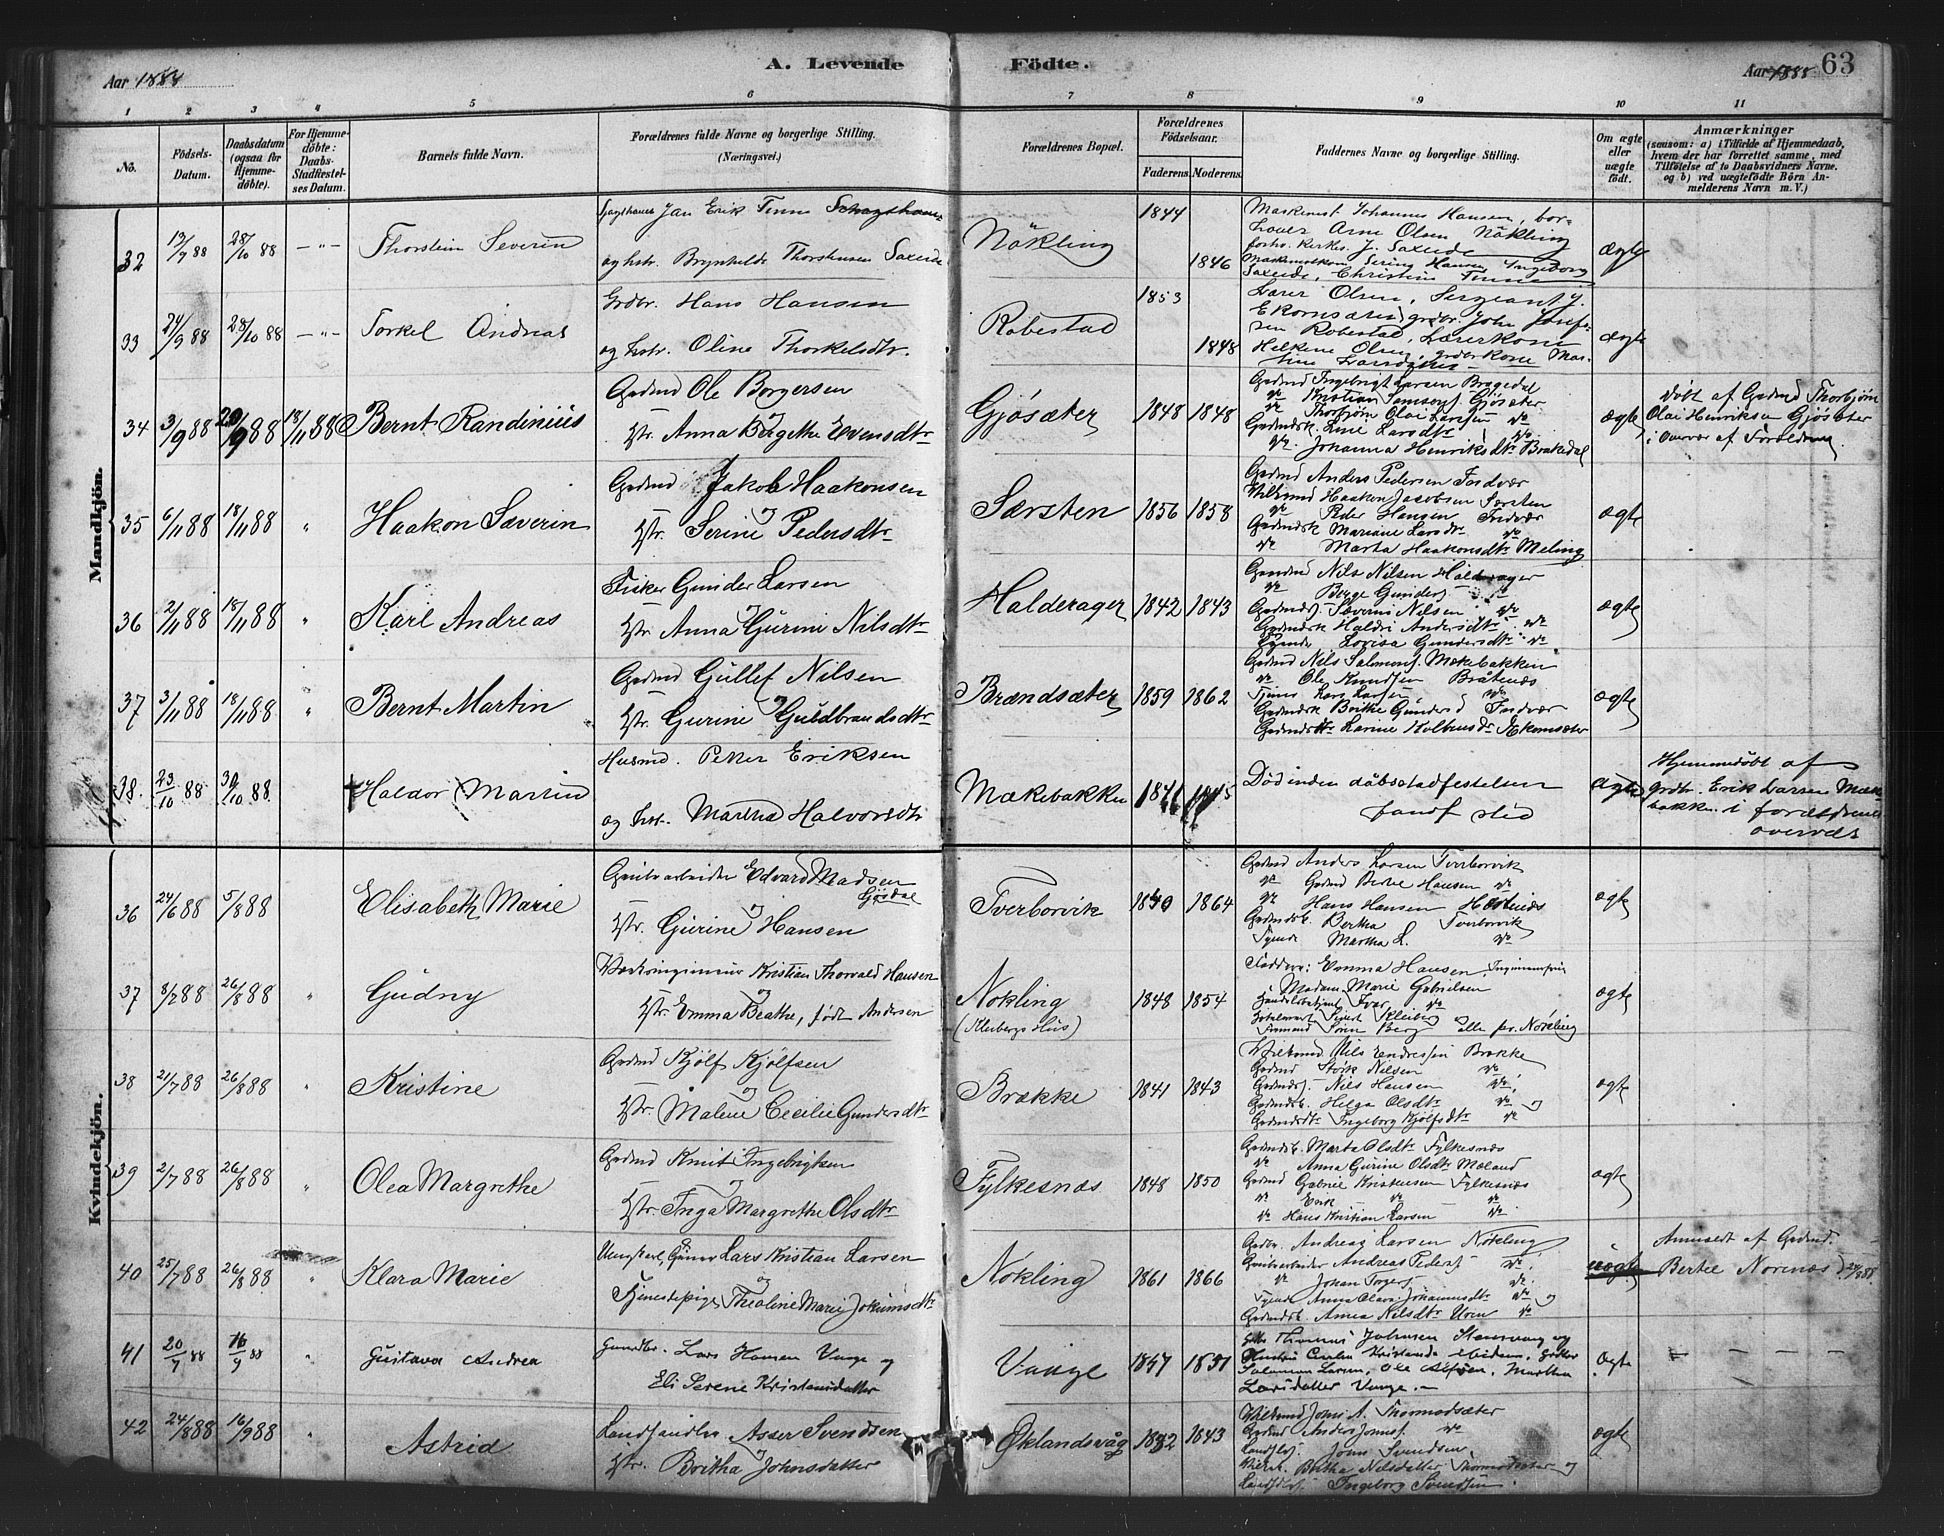 Aar 1888
A. Levende Födte.
Aar 1888 63
1 2 3 4 5 6 7 8 9 10 11
No.
Födsels-Datum.
Daabsdatum (ogsaa for Hjemme-döbte).
For Hjemme-döbte: Daabs-Stadfæstel-ses Datum.
Barnets fulde Navn.
Forældrenes fulde Navne og borgerlige Stilling. (Næringsvei.)
Forældrenes Bopæl.
Forældrenes Födselsaar.
Faderens. Moderens.
Faddernes Navne og borgerlige Stilling.
Om ægte eller uægte födt.
Anmærkninger
(saasom: a) i Tilfælde af Hjemmedaab,
hvem der har forrettet samme, med
Tilföielse af to Daabsvidners Navne.
og b) ved uægtefödte Börn An-
melderens Navn m. V.)
Mandkjön.
32 13/9 88 28/10 88 — " — Thorstein Severin
Jan Erik Tinne
og hstr. Brynhilde Thorsteinsen Saxeide
Nökling 1844 1846
Maskinmst Johannes Hansen,
Arne Olsen Nökling
Saxeide, Christine Tinne
ægte
33 24/9 88 28/10 88 — " — Torkel Andreas
Grdbr. Hans Hansen
og hstr. Oline Thorkelsdtr.
Robestad 1853 1848
Lærer Olsen, Sergeant J.
Ekornsæter, grdbr. John Josef-
sen Robestad, Lærerkone
Helene Olsen, grdbrkone Mar-
tine Larsdatter
ægte
34 3/9 88 20/9 88 18/11 88 Bernt Randinius
Grdmd Ole Borgersen
Hstr. Anna Bergethe Evensdtr
Gjösæter 1848 1848
Grdmd Ingebrigt Larsen Bragedal
do Kristian Samsons. Gjösæter
do Thorbjörn Olai Larsen do
Grdmdsk. Line Larsdtr do
do Johanna Henriksdtr Brakedal
ægte
Döbt af Grdmd Thorbjörn
Olai Henriksen Gjösæter
i Overvær af Forældrene
35 6/11 88 18/11 88 " Haakon Sæverin
Grdmd Jakob Haakonsen
og
Hstr. Serine Pedersdtr
Særsten 1856 1858
Grdmd Anders Pedersen Indvær
Haakon Jacobsen Særsten
do Peder Hansen Indvær
Grdmdsk Mariane Larsdtr do
do Marta Haakonsdtr Meling
ægte
36 2/11 88 18/11 88 " Karl Andreas
Fisker Gunder Larsen
og
Hstr Anna Gurine Nilsdtr
Halderager 1842 1843
Grdmd Nils Nilsen Halderager
do Börge Gunders. do
Grdmds. Sæverin Nilsen do
Grdmdsk Haldri Andersdtr do
Lovisa Gundersdtr do
ægte
37 3/11 88 18/11 88 " Bernt Martin
Grdmd Gullef Nilsen
og
Hstr. Gurine Guldbrandsdtr
Brandsæter 1859 1862
Grdmd Nils Salmons. Mækebakken
do Ole Knudsen Bråtenæs
Lars Larsen do
Grdmdsk Brithe Gunders Indvær
Larine Kolbensdr Ekornsæter
ægte
38. 23/10 88 30/10 88 † Haldor Martin
Husmd. Petter Eriksen
og hst. Martha Halvorsdtr
Mækebakken 1846 1845
Död inden dåbsstadfestelsen
fandt sted
ægte
Hjemmedöbt af
grdbr. Erik Larsen Mæke-
bakken i forældrenes
overvær
Kvindekjön.
36 24/6 88 5/8 88 Elisabeth Marie
Grubearbeider Edvard Madsen
Gjösdal
og
Hstr. Gurine Hansen
Tverborvik 1840 1864
Grdmd Anders Larsen Tverborvik
do Grdmd Berte Hansen do
do Hans Hansen Hestenæs
Grdmdsk. Bertha Tverborvik
Tjende Martha L. do
ægte
37 8/7 88 26/8 88 " Gudny
Værksingeniør Kristian Thorvald Hansen
og
Hstr. Emma Beathe, født Andersen
Nökling
(Kleibergs Hus)
1848 1854
Faddere: Emma Hansen, Ingeniørfrue
Madam Marie Gabrielsen
Ivar do
Sivert Kleiberg
Sören Berg alle pr. Nökling
ægte
38 21/7 88 26/8 88 " Kristine
Grdmd Kjölf Kjölfsen
og
Hstr. Malene Cecilie Gundersdtr
Brække 1841 1843
Nils Endressen Brække
Grdmd Störk Nilsen do
Grdmds. Nils Hansen do
Grdmdsk. Helga Olsdtr do og
Grdmdsdtr Ingeborg Kjölfsdtr do
ægte
39 2/7 88 26/8 88 " Olea Margrethe
Grdmd Knut Ingebrigtsen
og
Hstr. Inga Margrethe Olsdtr
Fylkesnæs 1848 1850
Grdmdsk. Marta Olsdtr Fylkesnæs
do Anna Gurine Olsdtr Mæland
Grdmd Gabriel Kristensen Fylkesnæs
do Erik do do
do Hans Kristian Larsen do
ægte
40 25/7 88 26/8 88 " Klara Marie
Ungkarl, Lars Kristian Larsen
og
Tjenestepige Thealine Marie Jokumsdtr
Nökling 1861 1866
Grdbr. Andreas Larsen Nökling
Grubearbeider Andreas Peders. do
do Johan Torgers. do
Tjende Anna Olava Johannesdtr do og
Grdmdsk. Anna Nilsdtr Uren do
uægte
Anmeldt af Grdmd.
Bertel Norenæs 24/8 88
41 20/7 88 16/9 88 " Gustava Andrea
Gaardbr. Lars Hansen Vaage og
Eli Serene Kristensdatter
Vaage 1847 1851
Thomas Johnsen Stensvaag og
Salamon Larsen, Ole Olsen, Martha
Larsdatter Vaage.
ægte
— — — —
42 24/8 88 16/9 88 " Astrid
Landhandler Asser Svendsen
og
Hstr. Britha Johnsdatter
Öklandsvåg 1832 1843
Johns A. Thormodsæter
Grdmd Anders Johns. do
John Svendsen
Britha Nilsdatter Thormodsæter og
Ingeborg Svendsen.
ægte